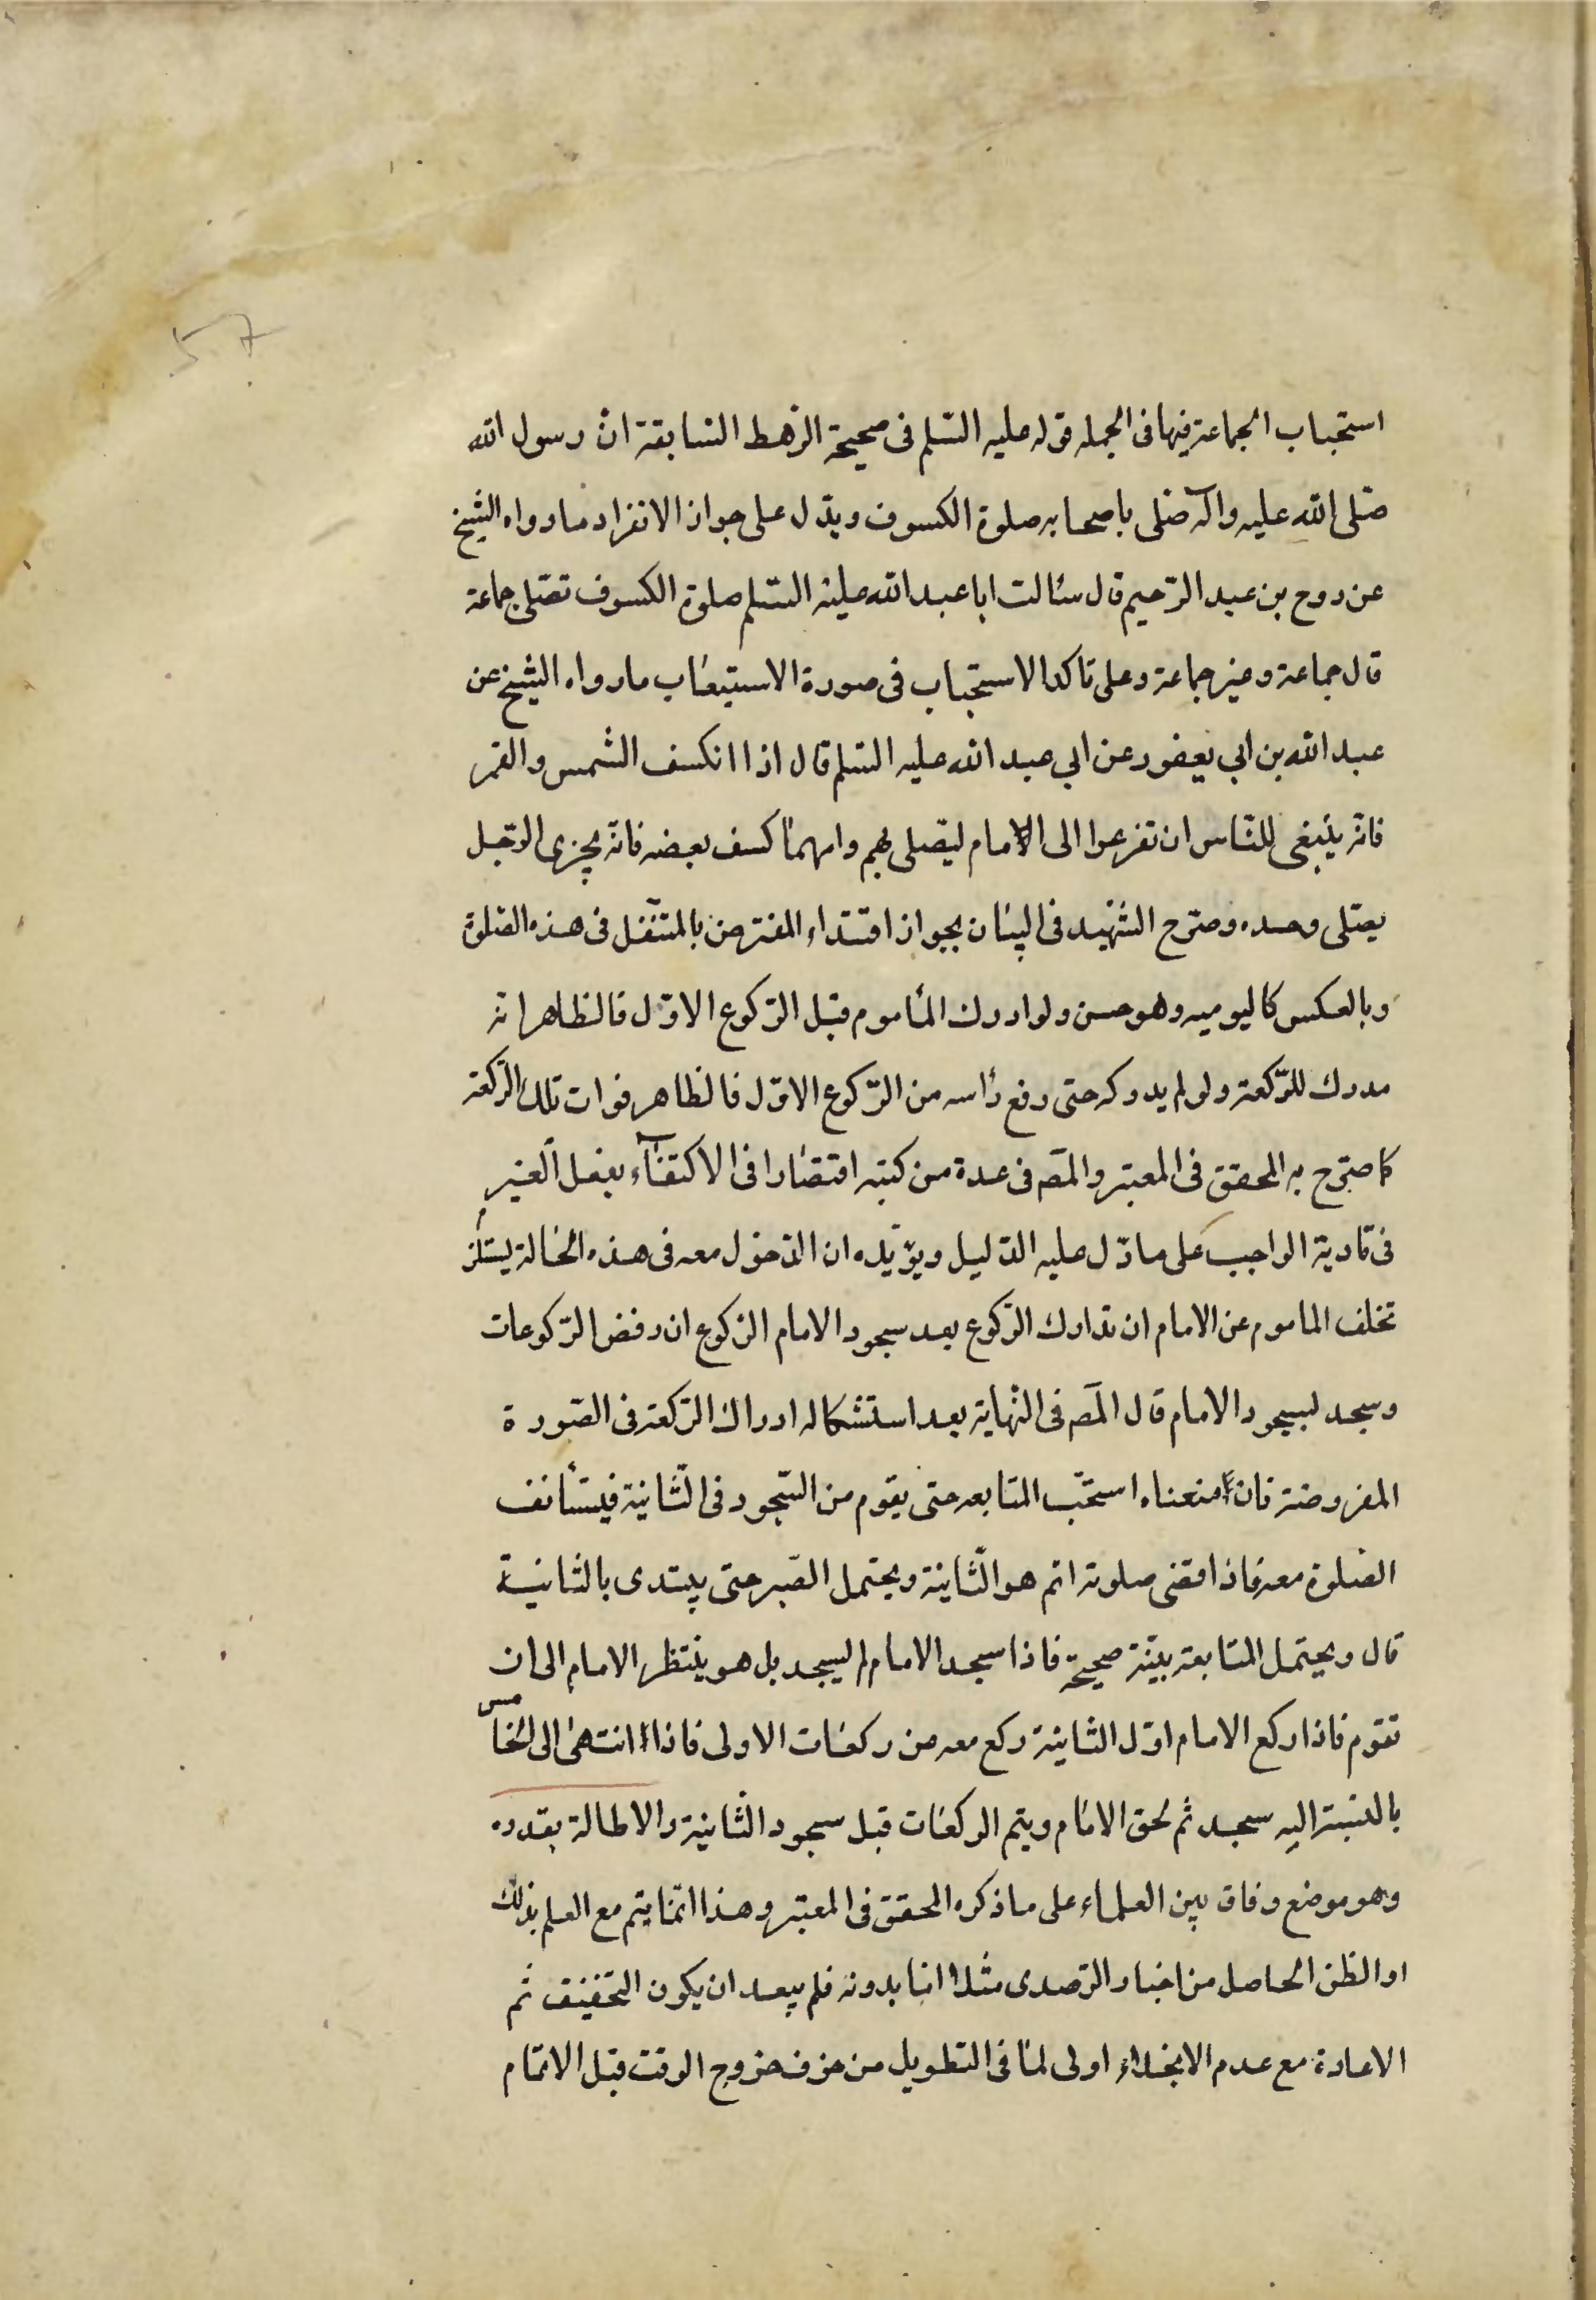 ۵۷
استحباب الجماعة فيها فى الجمله قوله عليه السّلم فى صحيحة الرّهط السّابقة انّ رسول الله
صلّى الله عليه وآله صلّى باصحابه صلوة الكسوف ويدّل على جواز الانفراد ما رواه الشيخ
عن روح بن عبد الرّحيم قال سئالت ابا عبد الله عليه السّلم صلوة الكسوف تصّلى جماعة
قال جماعة وغير جماعة وعلى تاكد الاستحباب فى صورة الاستيعاب ما رواه الشيخ عن
عبد الله بن ابي يعفور عن ابي عبد الله عليه السّلم قال اذا انكسف الشمس والقمر
فانّه ينبغى للنّاس ان تفرعوا الى الامام ليصّلى بهم وايهما كسف بعضه فانّه يجزى الرّجل
يصّلى وحده وصرّح الشّهيد فى البيان بجواز اقتداء المفترض بالمتنّفل فى هذه الصّلوة
وبالعكس كاليوميه وهو حسن ولو ادرك المأموم قبل الرّكوع الاوّل فالظاهر انه
مدرك للرّكعة ولو لم يدركه حتى رفع رأسه من الرّكوع الاوّل فالظاهر فوات تلك الرّكعة
كما صرّح به المحقق فى المعتبر والمصَ فى عدة من كتبه اقتصارا فى الاكتفآء بفعل الغير
فى تادية الواجب على ما دّل عليه الدّليل ويؤيّده ان الدّخول معه فى هذه الحالة يستلزم
تخلف الماموم عن الامام ان تدارك الرّكوع بعد سجود الامام الرّكوع ان رفض الرّكوعات
وسجد لسجود الامام قال المصَ فى النّهاية بعد استشكاله ادراك الرّكعة فى الصّورة
المفروضة فان منعناه استحّب المتابعه حتى يقوم من السّجود فى الثّانية فيستأنف
الصّلوة معه فاذا قضى صلوته اتم هو الثّانية ويحتمل الصّبر حتى يبتدى بالثانية
قال ويحتمل المتابعة بنيّة صحيحة فاذا سجد الامام لم يسجد بل هو ينتظر الامام الى ان
تقوم فاذا ركع الامام اوّل الثانية ركع معه من ركعات الاولى فاذا انتهى الى الخامس
بالنسبة اليه سجد ثم لحق الامام ويتم الركعات قبل سجود الثّانية والاطالة بقدره
وهو موضع وفاق بين العلماء على ما ذكره المحقق فى المعتبر وهذا انّما يتم مع العلم بذلك
او الظن الحاصل من اخبار الرّصدى مثلا اما بدونه فلم يبعد ان يكون التخفيف ثم
الاعادة مع عدم الانجلاء اولى لما فى التطويل من خوف خروج الوقت قبل الاتمام